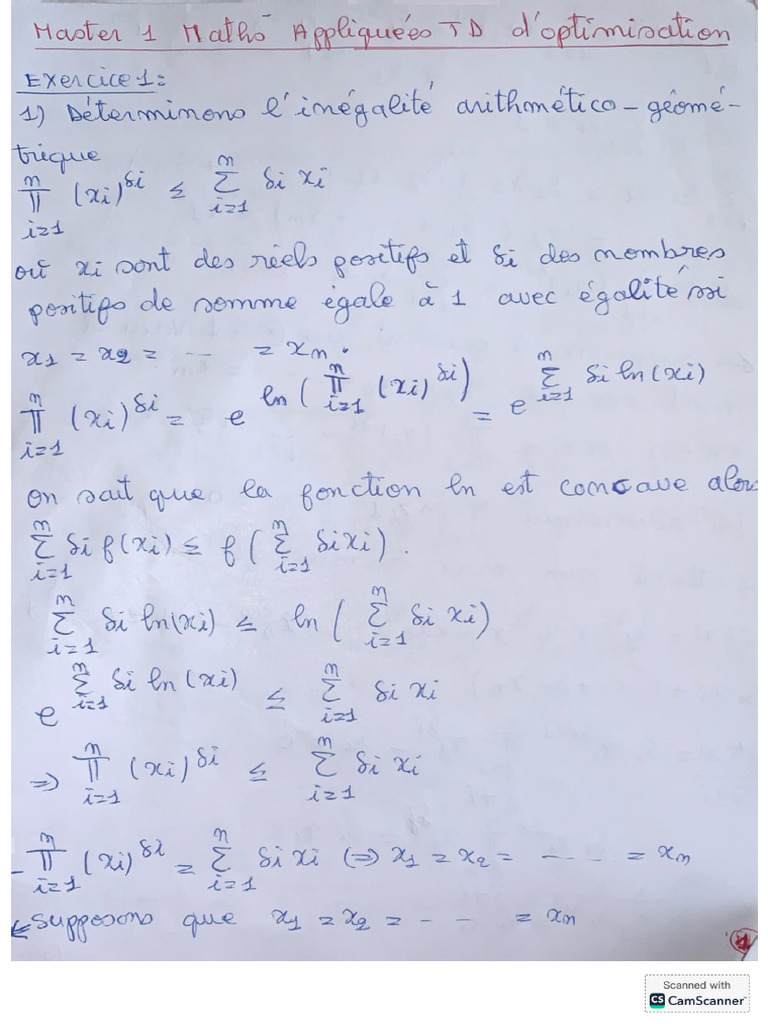 Master 1 Maths Appliquées TD d'optimisation
Exercice 1:
1) Déterminons l'inégalité arithmético-géomé-
trique
∏_{i=1}^{n} (xi)^{δi} ≤ ∑_{i=1}^{n} δi xi
où xi sont des réels positifs et δi des nombres
positifs de somme égale à 1 avec égalité ssi
x1 = x2 = --- = xn.
∏_{i=1}^{n} (xi)^{δi} = e^{ln(∏_{i=1}^{n} (xi)^{δi})} = e^{∑_{i=1}^{n} δi ln(xi)}
on sait que la fonction ln est concave alors
∑_{i=1}^{n} δi f(xi) ≤ f(∑_{i=1}^{n} δi xi).
∑_{i=1}^{n} δi ln(xi) ≤ ln(∑_{i=1}^{n} δi xi)
e^{∑_{i=1}^{n} δi ln(xi)} ≤ ∑_{i=1}^{n} δi xi
=> ∏_{i=1}^{n} (xi)^{δi} ≤ ∑_{i=1}^{n} δi xi
- ∏_{i=1}^{n} (xi)^{δi} = ∑_{i=1}^{n} δi xi (=> x1 = x2 = --- -- = xn
<= supposons que x1 = x2 = -- -- = xn
Scanned with
CS CamScanner